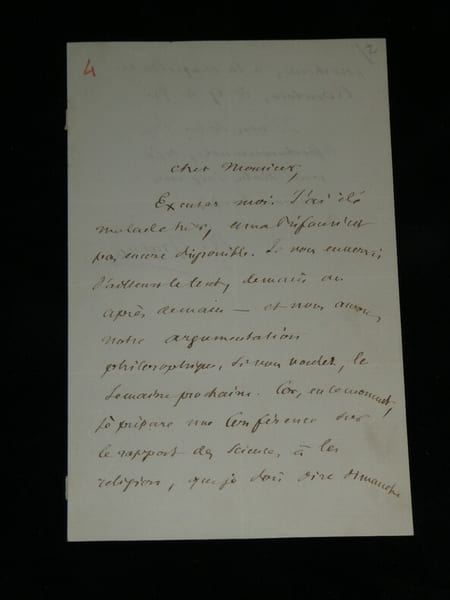 4
cher Monsieur,
Excusez moi. J'ai été
malade hier, et ma Préface n'est
pas encore disponible. Je vous enverrai
d'ailleurs le tout, demain ou
après demain — et nous aurons
notre argumentation
philosophique, si vous voulez, la
semaine prochaine. Car, en ce moment,
je prépare une Conférence sur
le rapport des sciences à la
religion, que je dois dire dimanche